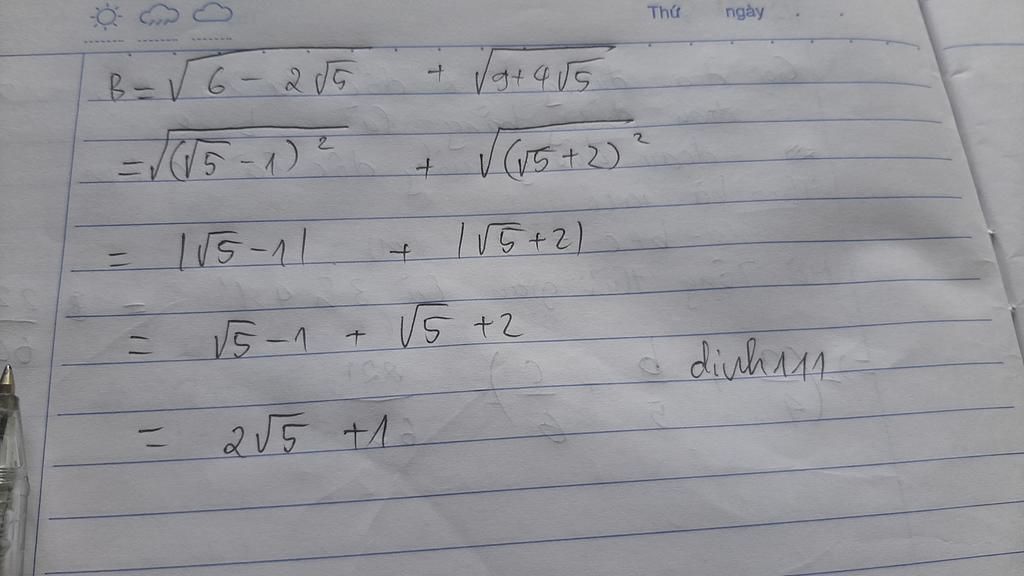 Thứ ngày . .
B = √(6 - 2√5) + √(9+4√5)
= √((√5 - 1)²) + √((√5 + 2)²)
= |√5 - 1| + |√5 + 2|
= √5 - 1 + √5 + 2
dinh111
= 2√5 + 1